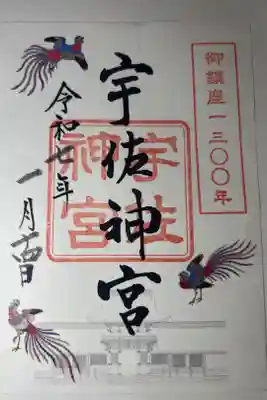 御鎮座一三〇〇年
宇佐神宮
宇佐
神宮
令和七年
一月